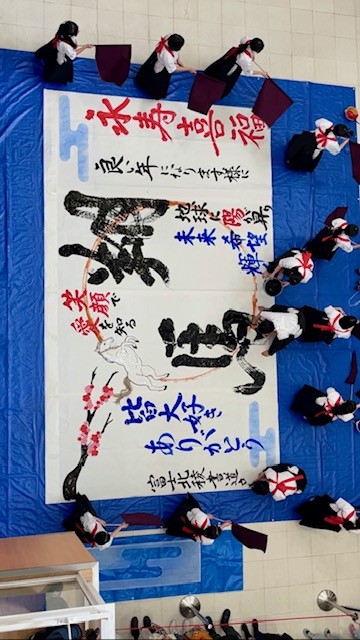 永寿喜福
良い年になります様に
地球に陽が昇り
未来希望
輝く
笑顔で
愛を知る
皆大好き
ありがとう
富士北稜書道部